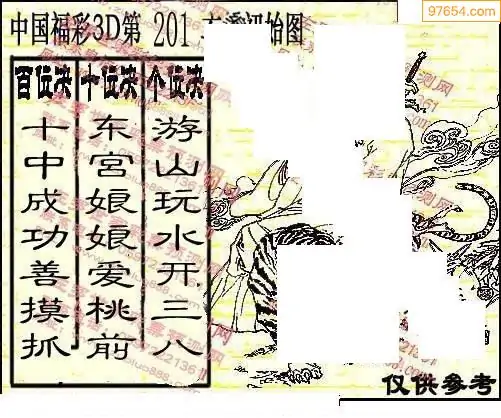 97654.com
中国福彩3D第 201
始图
百位决 十位决 个位决
十中成功善摸抓
东宫娘娘爱桃前
游山玩水开三八
仅供参考